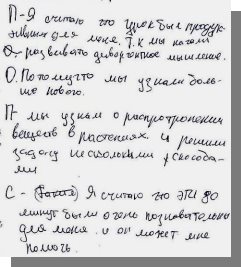 П - Я считаю что урок был продук-
тивным для меня. Т.к мы начали
О - развивать дивергентное мышление.
О. Потому что мы узнали боль-
ше нового.
П - мы узнали о распространении
веществ в растениях. и решили
задачу несколькими способа-
ми
С - Я считаю что эти 80
минут были очень познавательны
для меня. и он может мне
помочь.